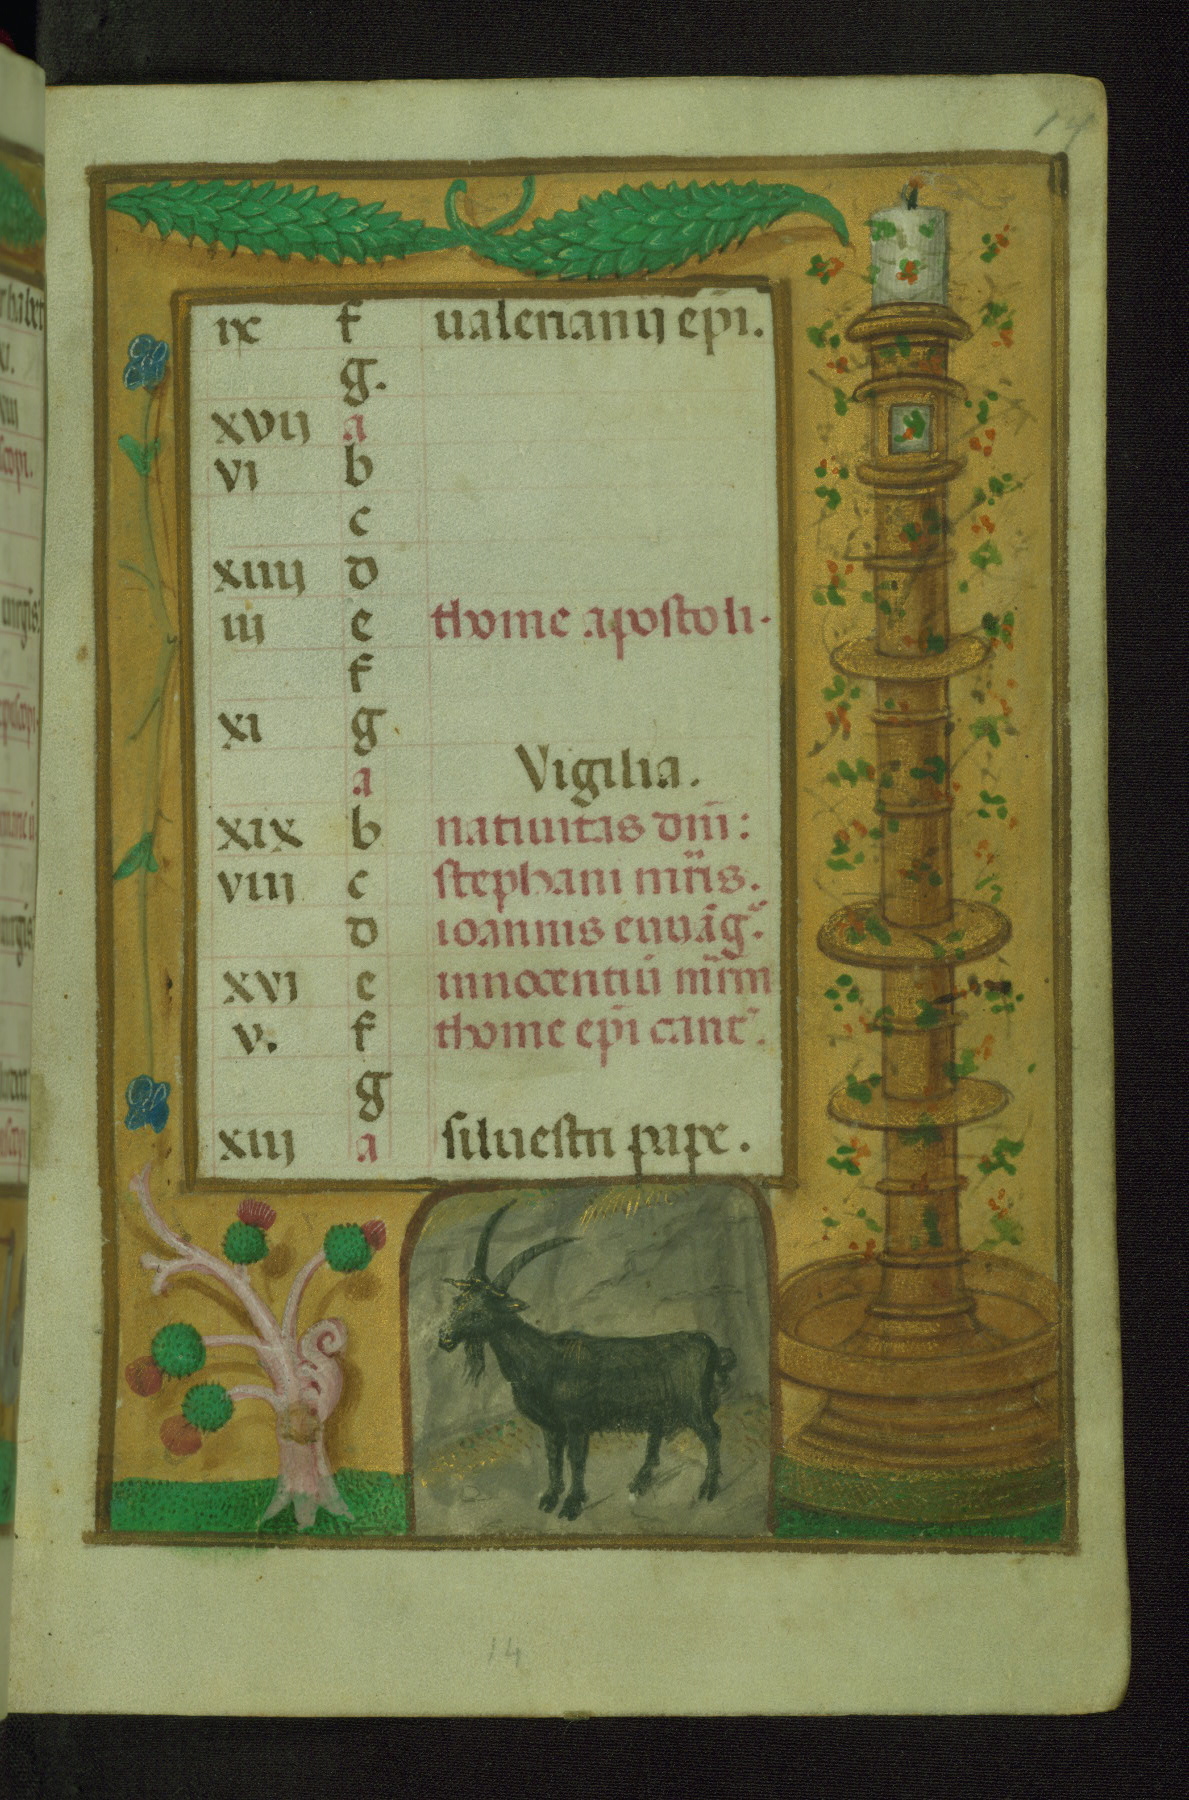 14
ix f ualerianij epi.
g.
xvij a
vi b
c
xiiij d
iij e thome apostoli.
f
xi g
a Vigilia.
xix b natiuitas dni:
viij c stephani mris.
d ioannis euuāg.
xvj e innocentiū mrm
v. f thome epi cant.
g
xiij a siluestri pape.
14